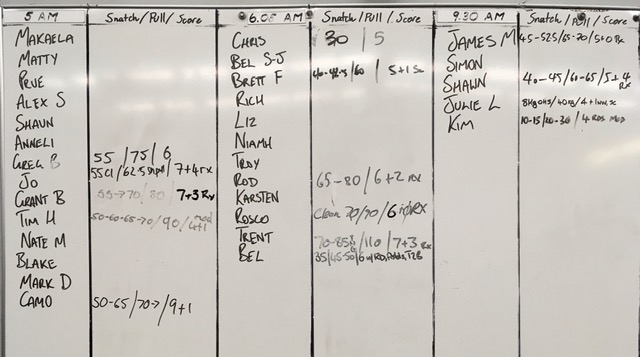 5 AM Snatch/Pull/Score
MAKAELA
MATTY
PRUE
ALEX S
SHAUN
ANNELI
GREG B 55/75/6
JO 7+4 rx
GRANT B 7+3 Rx
TIM H 50-60-65-70/90/4+1 mod
NATE M
BLAKE
MARK D
CAMO 50-65/70→/9+1
6.05 AM Snatch/Pull/Score
CHRIS 30/5
BEL S-J
BRETT F /60/5+1 Sc
RICH
LIZ
NIAMH
TROY
ROD 65-80/6+2 rx
KARSTEN
ROSCO Clean 70/70/6 RX
TRENT 70-85/110/7+3 Rx
BEL 35/45-50/6
9.30 AM Snatch/Pull/Score
JAMES M 45-52.5/65-70/5+0 Rx
SIMON
SHAWN 40-45/60-65/5+4 Rx
JULIE L
KIM 10-15/20-30/4 MOD